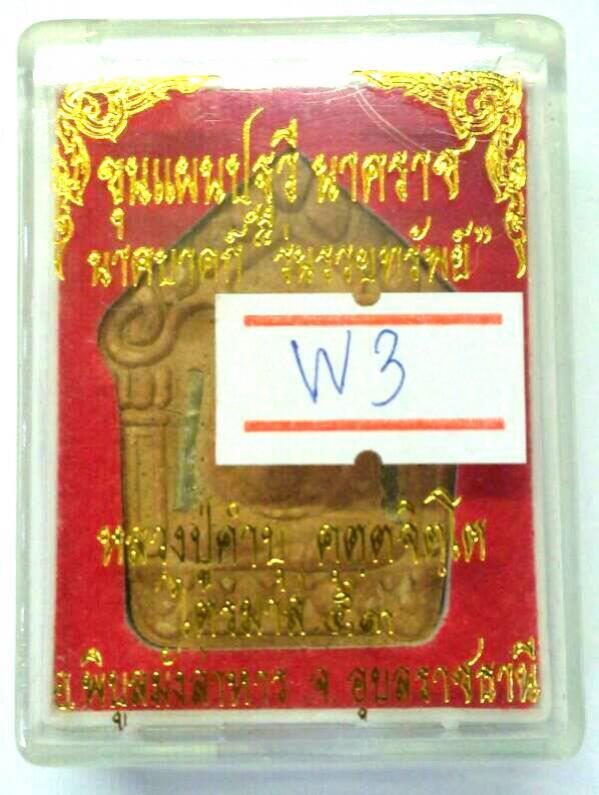 ขุนแผนปฐวี นาคราช
นาคบาดที่ ๕ "รุ่นรวยทรัพย์"
W3
หลวงปู่คำบุ คุตฺตจิตฺโต
ไตรมาส ๕๓
อ.พิบูลมังสาหาร จ.อุบลราชธานี